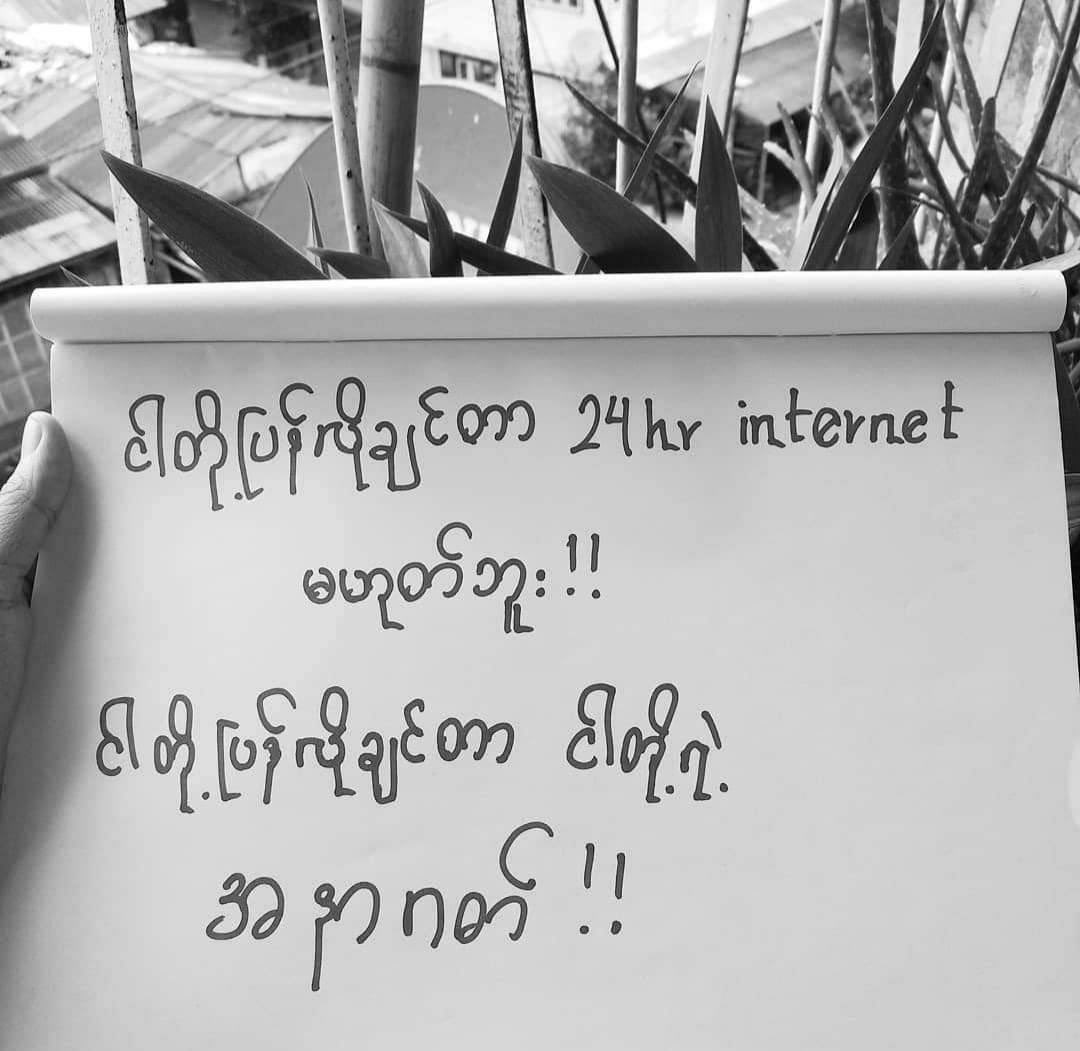 ငါတို့ပြန်လိုချင်တာ 24hr internet
မဟုတ်ဘူး!!
ငါတို့ပြန်လိုချင်တာ ငါတို့ရဲ့
အနာဂတ်!!